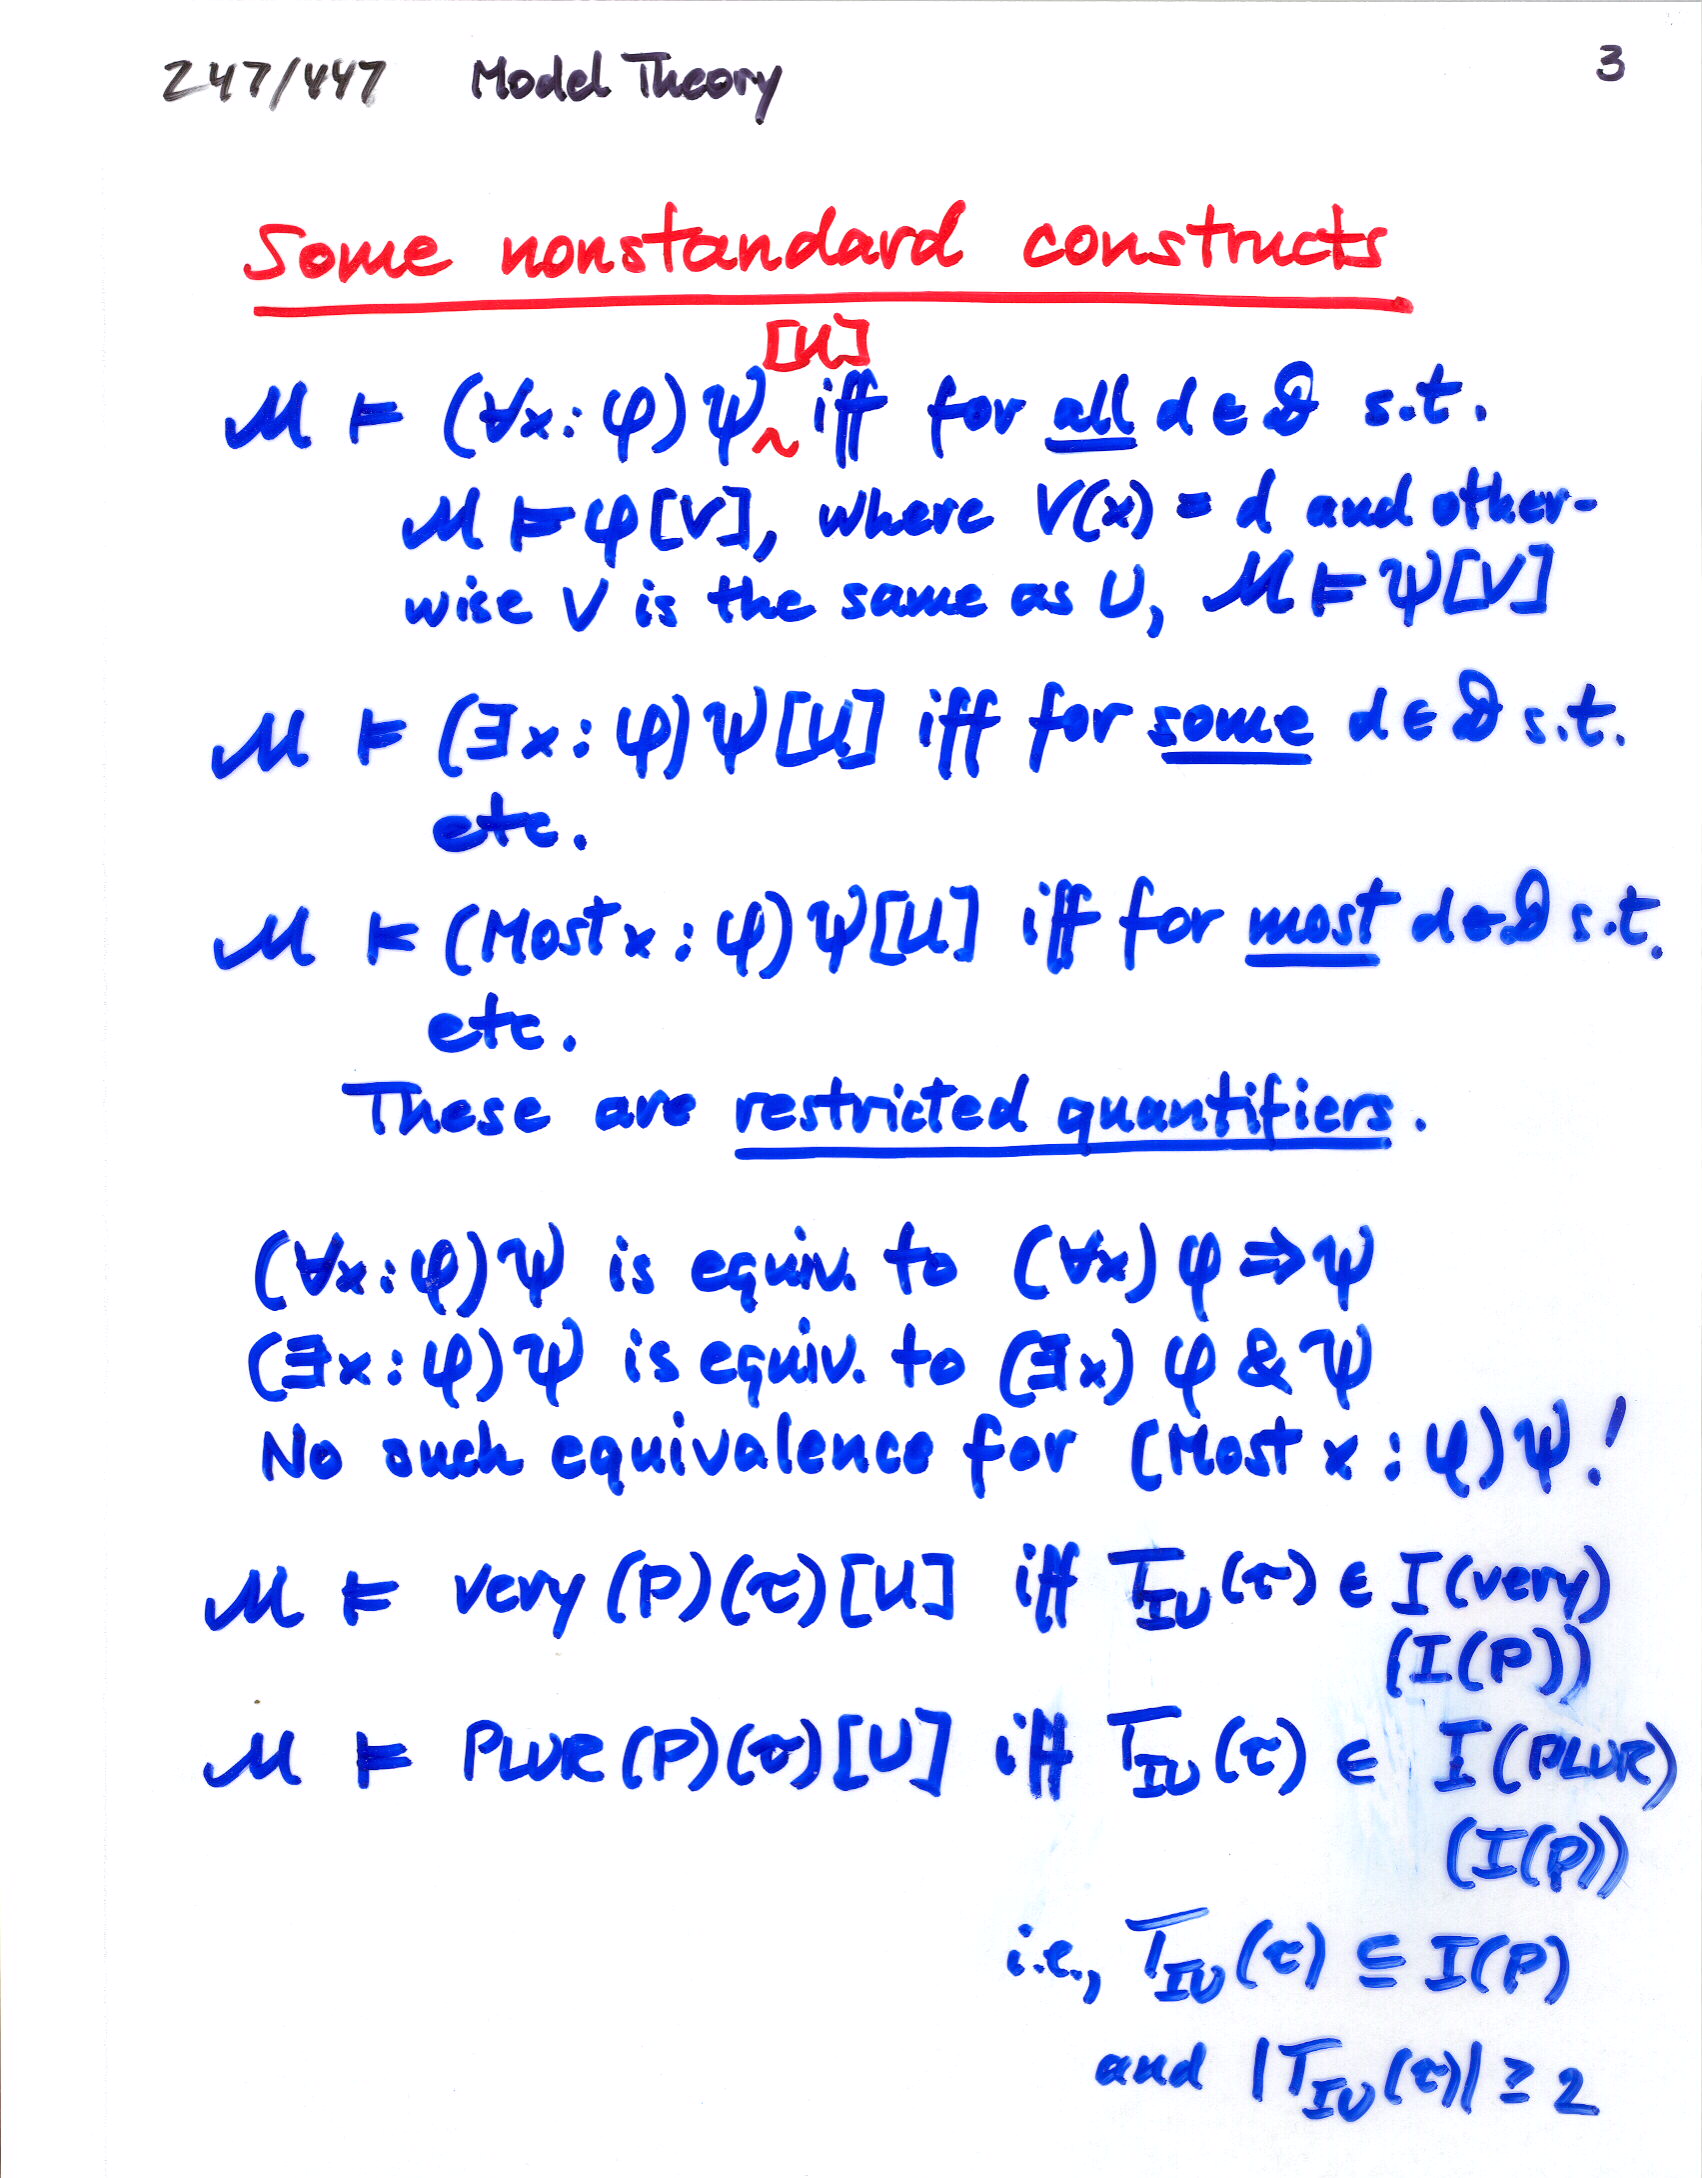 247/447 Model Theory 3
Some nonstandard constructs
[U]
M ⊨ (∀x: φ) ψ ~ iff for all d ∈ D s.t.
M ⊨ φ[V], where V(x) = d and other-
wise V is the same as U, M ⊨ ψ[V]
M ⊨ (∃x: φ) ψ[U] iff for some d ∈ D s.t.
etc.
M ⊨ (Most x: φ) ψ[U] iff for most d ∈ D s.t.
etc.
These are restricted quantifiers.
(∀x: φ) ψ is equiv. to (∀x) φ ⇒ ψ
(∃x: φ) ψ is equiv. to (∃x) φ & ψ
No such equivalence for (Most x: φ) ψ!
M ⊨ very (P)(τ)[U] iff T_IU(τ) ∈ I(very)
(I(P))
M ⊨ PLUR(P)(τ)[U] iff T_IU(τ) ∈ I(PLUR)
(I(P))
i.e., T_IU(τ) ⊆ I(P)
and |T_IU(τ)| ≥ 2